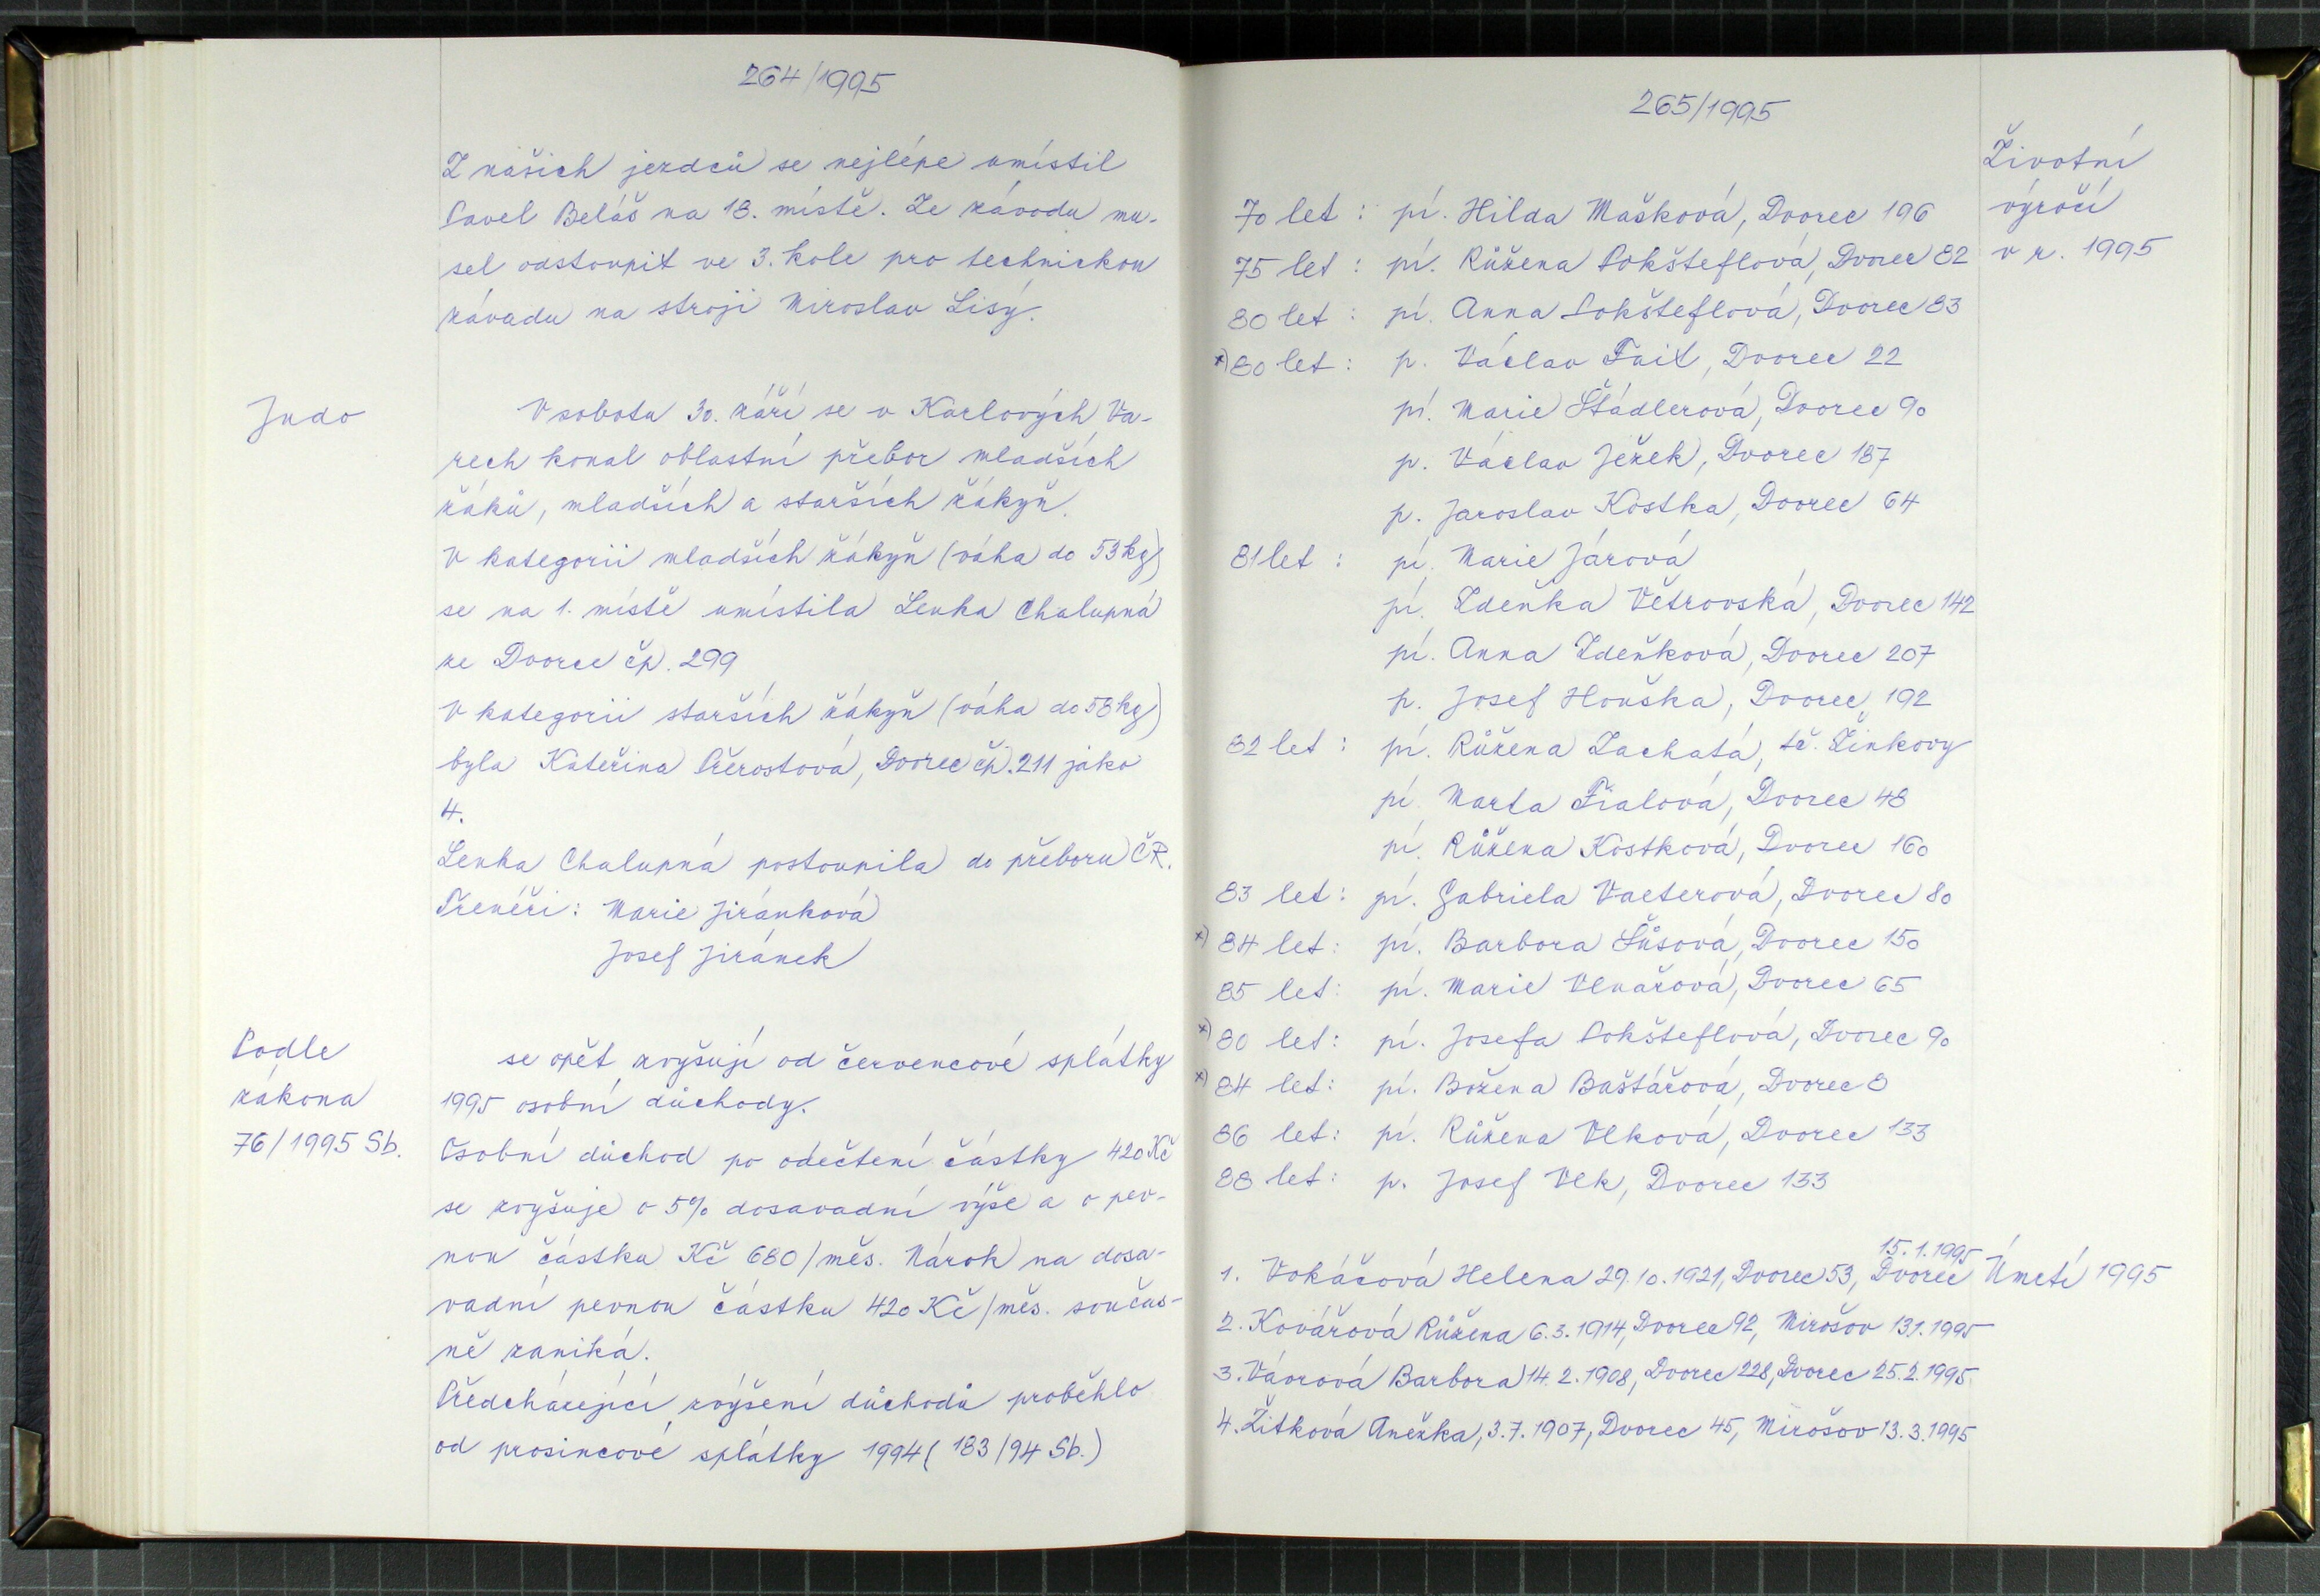 264/1995
Z našich jezdců se nejlépe umístil
Pavel Beláš na 18. místě. Ze závodu mu-
sel odstoupit ve 3. kole pro technickou
závadu na stroji Miroslav Lisý.
Judo
V sobotu 30. září se v Karlových Va-
rech konal oblastní přebor mladších
žáků, mladších a starších žákyň.
V kategorii mladších žákyň (váha do 53 kg)
se na 1. místě umístila Lenka Chalupná
ze Dvorce čp. 299
V kategorii starších žákyň (váha do 58 kg)
byla Kateřina Přerostová, Dvorec čp. 211 jako
4.
Lenka Chalupná postoupila do přeboru ČR.
Trenéři: Marie Jiránková
Josef Jiránek
Podle
zákona
76/1995 Sb.
se opět zvyšují od červencové splátky
1995 osobní důchody.
Osobní důchod po odečtení částky 420 Kč
se zvyšuje o 5% dosavadní výše a o pev-
nou částku Kč 680/měs. Nárok na dosa-
vadní pevnou částku 420 Kč/měs. součas-
ně zaniká.
Předcházející zvýšení důchodů proběhlo
od prosincové splátky 1994 (183/94 Sb.)
265/1995
Životní
výročí
v r. 1995
70 let: pí. Hilda Mašková, Dvorec 196
75 let: pí. Růžena Pokšteflová, Dvorec 82
80 let: pí. Anna Pokšteflová, Dvorec 83
x) 80 let: p. Václav Fait, Dvorec 22
pí. Marie Štádlerová, Dvorec 90
p. Václav Ježek, Dvorec 187
p. Jaroslav Kostka, Dvorec 64
81 let: pí. Marie Járová
pí. Zdeňka Větrovská, Dvorec 142
pí. Anna Zdeňková, Dvorec 207
p. Josef Houška, Dvorec 192
82 let: pí. Růžena Zachatá, tč. Žinkovy
pí. Marta Fialová, Dvorec 48
pí. Růžena Kostková, Dvorec 160
83 let: pí. Gabriela Vaeterová, Dvorec 80
x) 84 let: pí. Barbora Šůsová, Dvorec 150
85 let: pí. Marie Vlnařová, Dvorec 65
x) 80 let: pí. Josefa Pokšteflová, Dvorec 90
x) 84 let: pí. Božena Baštářová, Dvorec 8
86 let: pí. Růžena Vlková, Dvorec 133
88 let: p. Josef Vlk, Dvorec 133
Úmrtí 1995
15.1.1995
1. Vokáčová Helena 29.10.1921, Dvorec 53, Dvorec
2. Kovářová Růžena 6.3.1914, Dvorec 92, Mirošov 13.1.1995
3. Vávrová Barbora 14.2.1908, Dvorec 228, Dvorec 25.2.1995
4. Žitková Anežka, 3.7.1907, Dvorec 45, Mirošov 13.3.1995